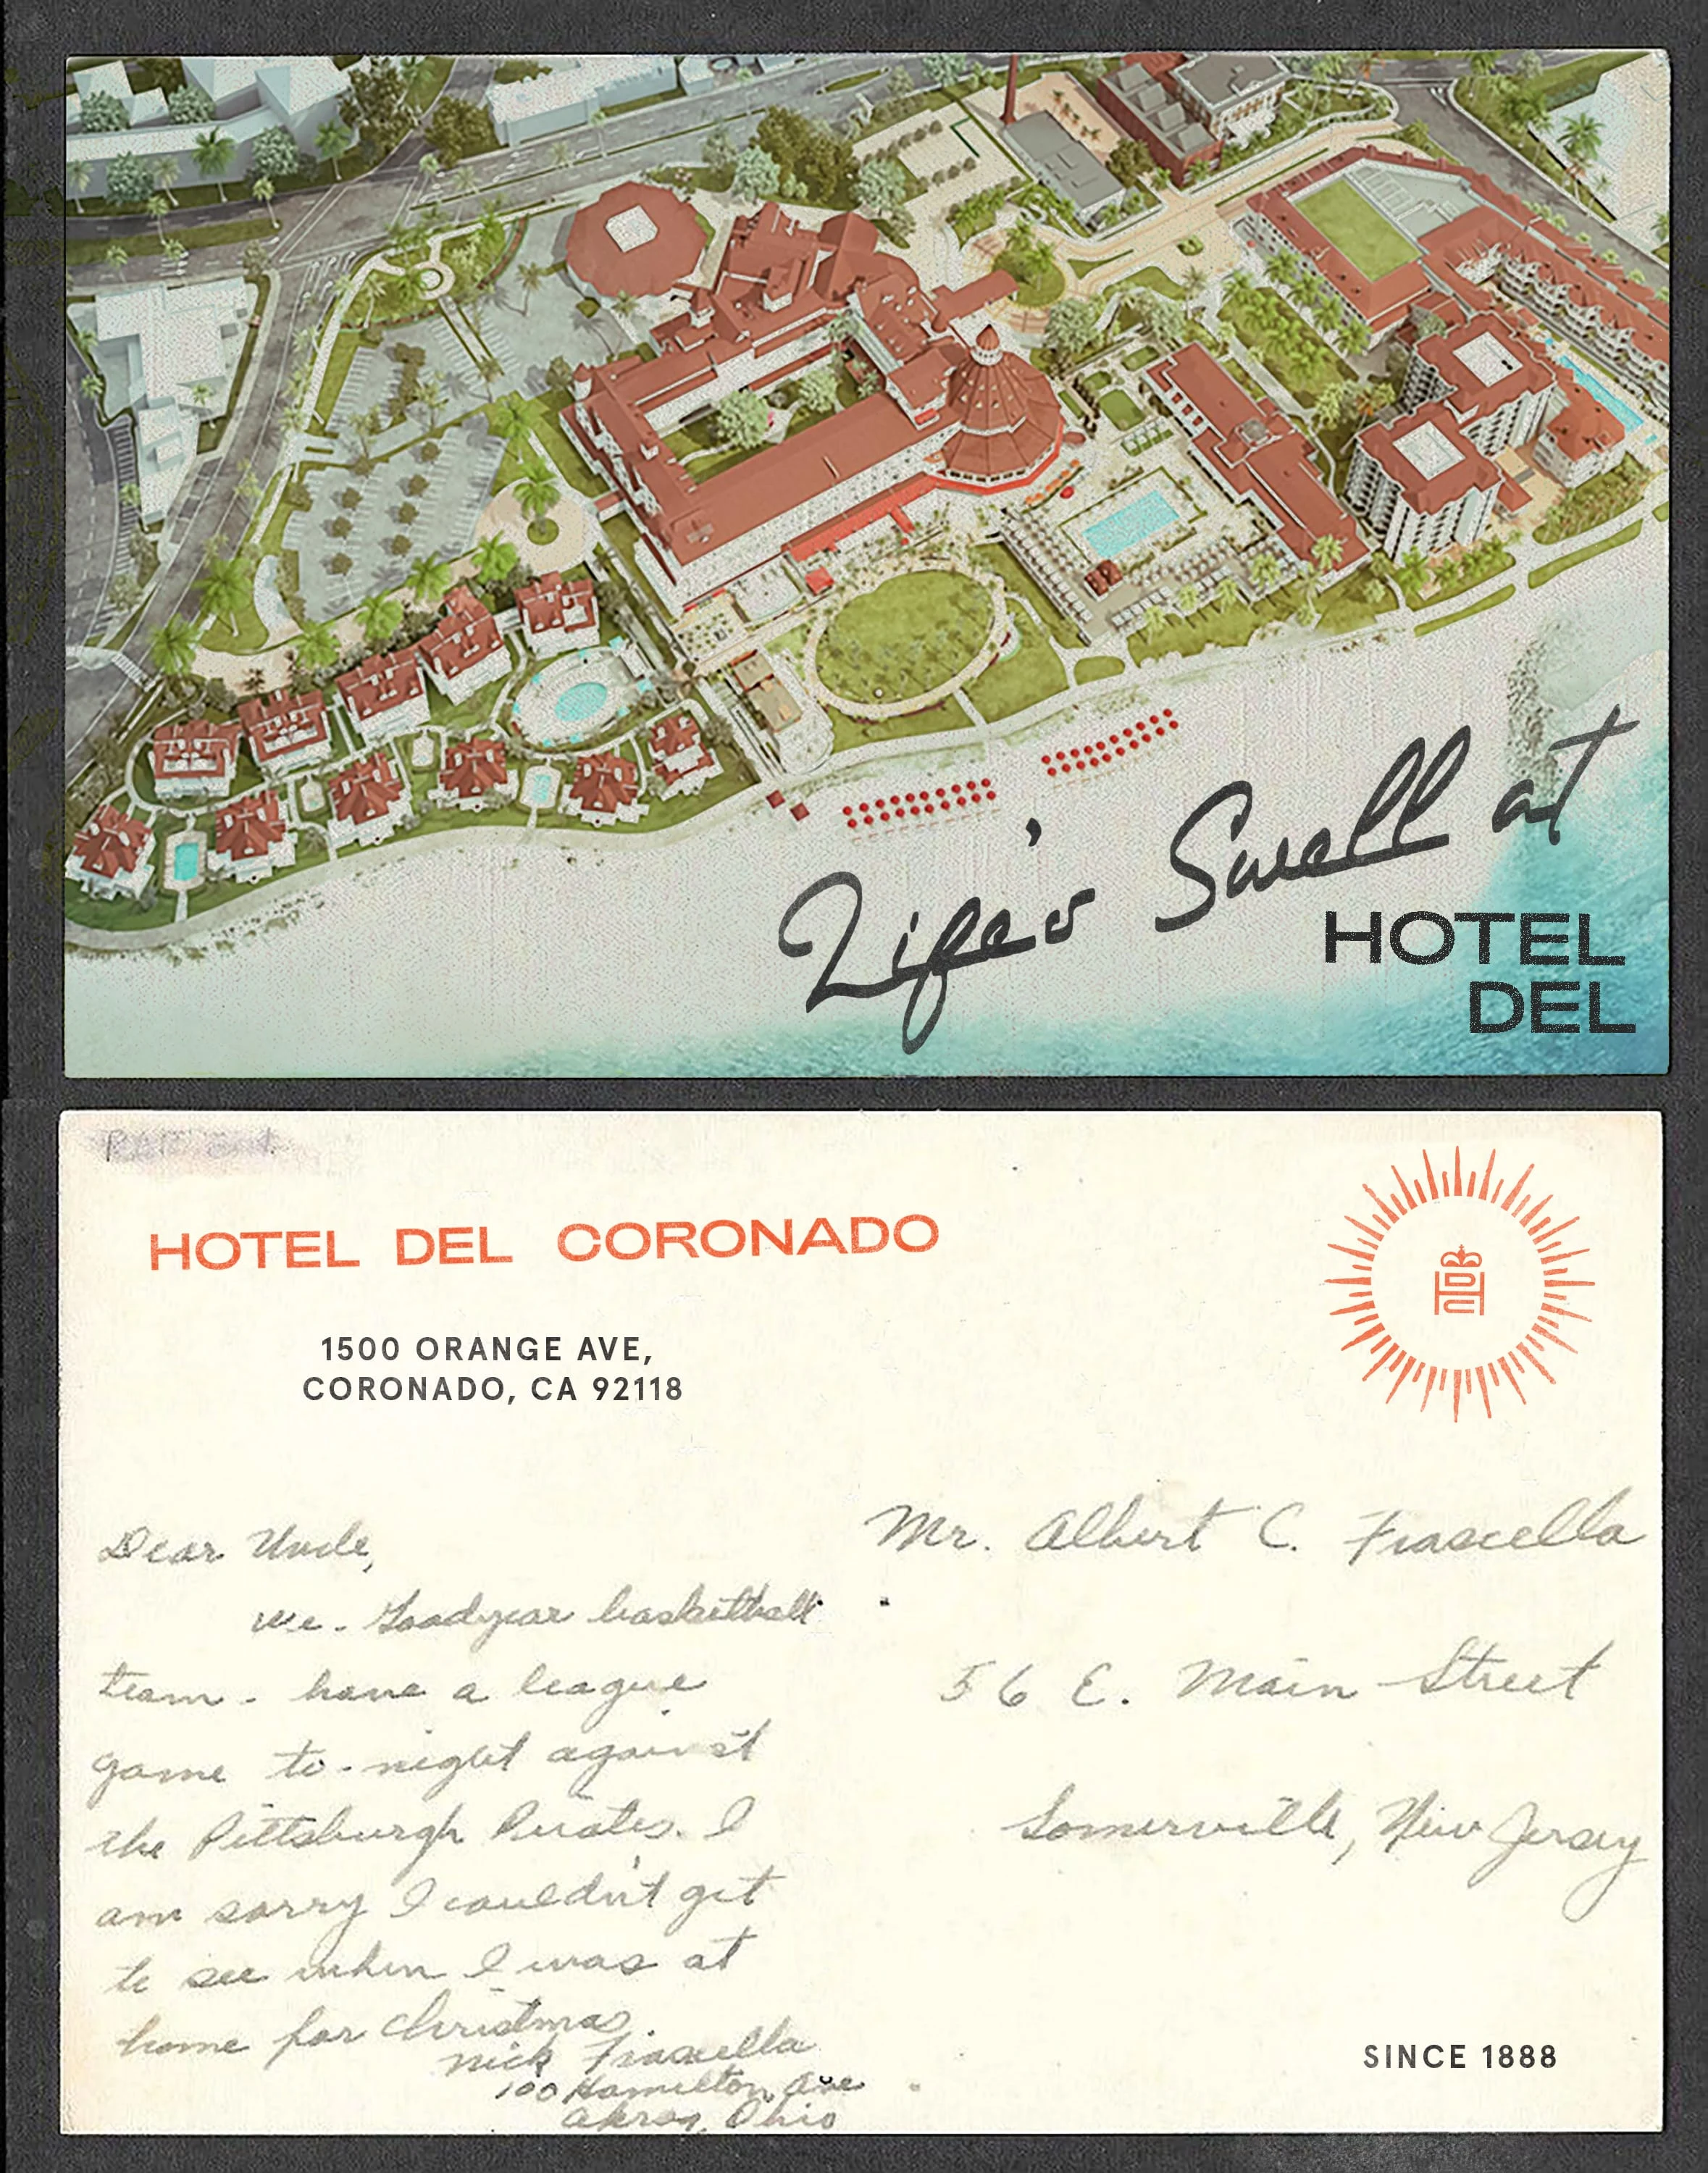 Life's Swell at
HOTEL
DEL
HOTEL DEL CORONADO
1500 ORANGE AVE,
CORONADO, CA 92118
HDC
Dear Uncle,
we - Goodyear basketball
team - have a league
game to-night against
the Pittsburgh Pirates. I
am sorry I couldn't get
to see when I was at
home for Christmas.
Nick Frascella
100 Hamilton Ave
Akron, Ohio
Mr. Albert C. Frascella
56 E. Main Street
Somerville, New Jersey
SINCE 1888